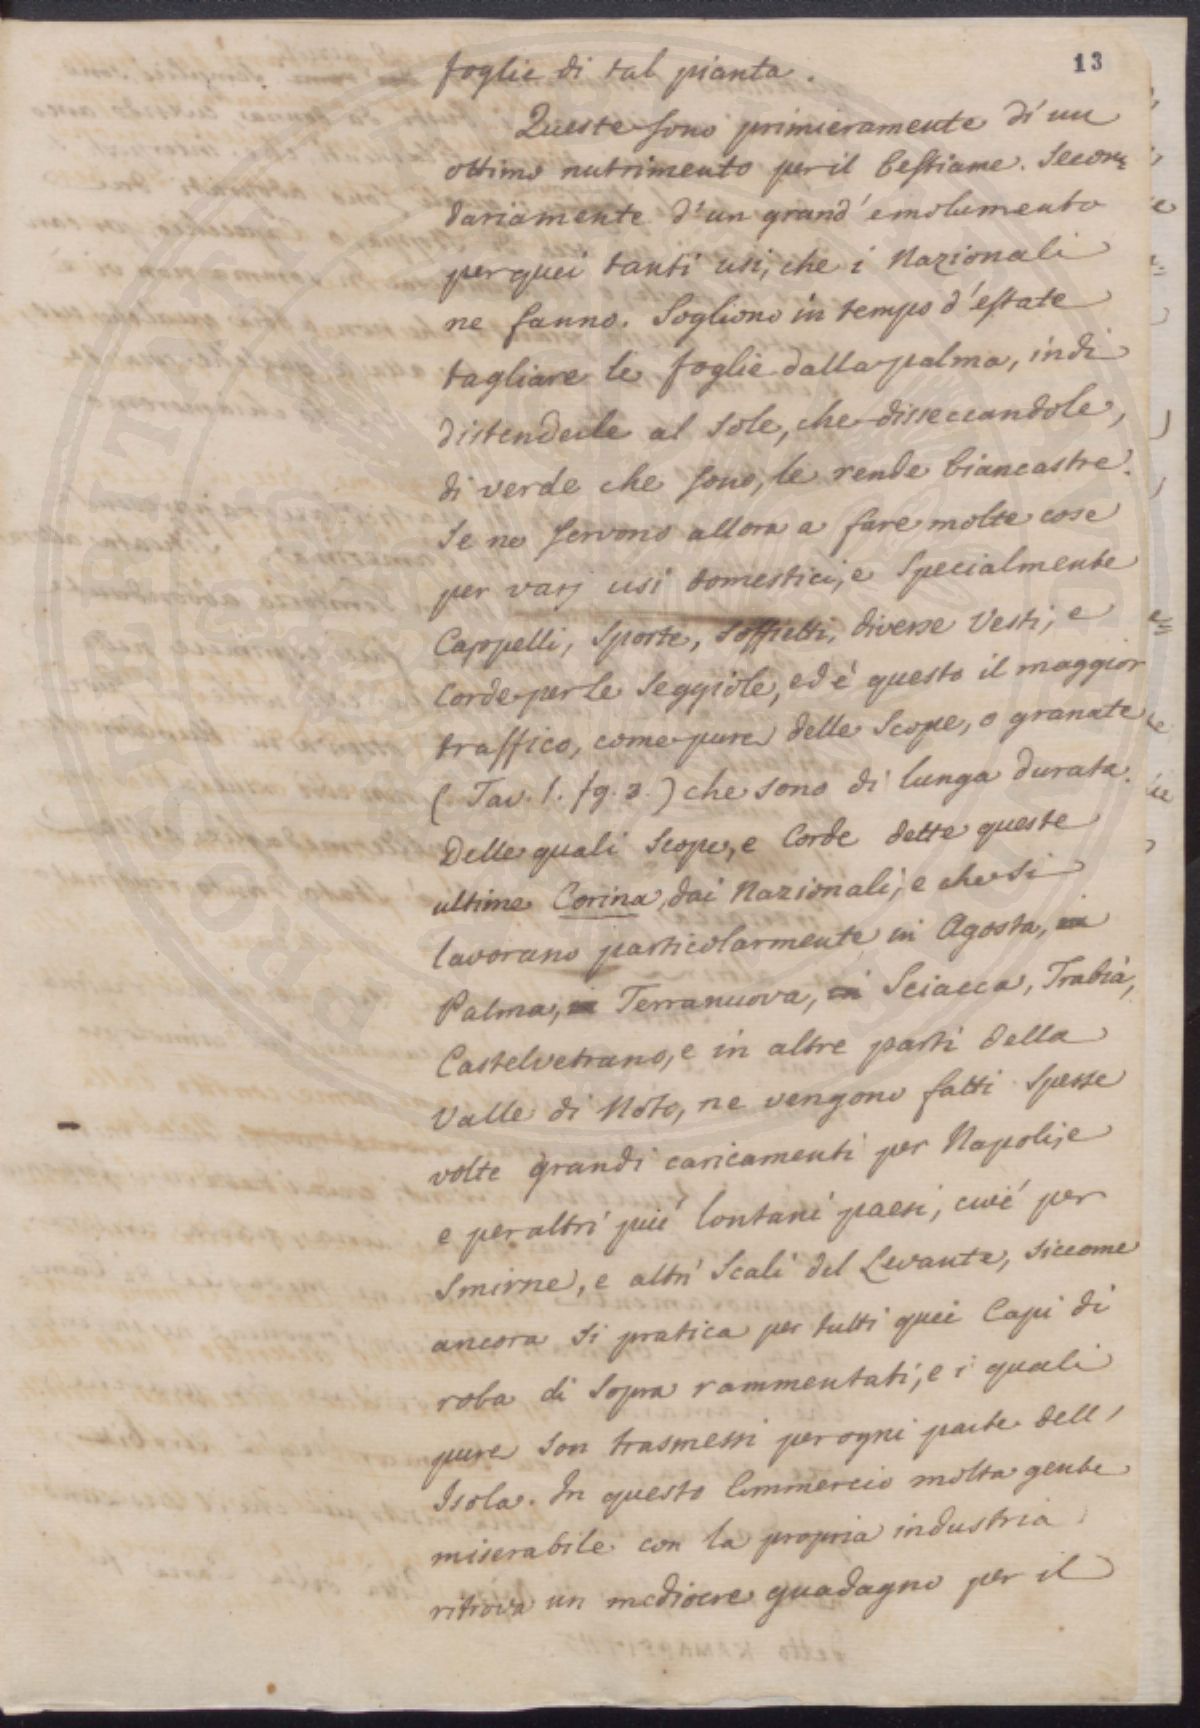 13
foglie di tal pianta.
Queste sono primieramente di un
ottimo nutrimento per il bestiame. Secon=
dariamente d'un grand'emolumento
per quei tanti usi, che i Nazionali
ne fanno. Sogliono in tempo d'estate
tagliare le foglie dalla palma, indi
distenderle al sole, che disseccandole,
di verde che sono, le rende biancastre.
Se ne servono allora a fare molte cose
per varj usi domestici, e specialmente
Cappelli, Sporte, Soffietti, diverse Vesti, e
Corde per le Seggiole, ed è questo il maggior
traffico, come pure delle Scope, o granate
(Tav. 1. fg. 3.) che sono di lunga durata.
Delle quali Scope, e Corde dette queste
ultime Corina, dai Nazionali, e che si
lavorano particolarmente in Agosta, in
Palma, in Terranuova, in Sciacca, Trabia,
Castelvetrano, e in altre parti della
Valle di Noto, ne vengono fatti spesse
volte grandi caricamenti per Napoli, e
e per altri più lontani paesi, cioè per
Smirne, e altri Scali del Levante, siccome
ancora si pratica per tutti quei Capi di
roba di sopra rammentati, e i quali
pure son trasmessi per ogni parte dell'
Isola. In questo Commercio molta gente
miserabile con la propria industria
ritrova un mediocre guadagno per il